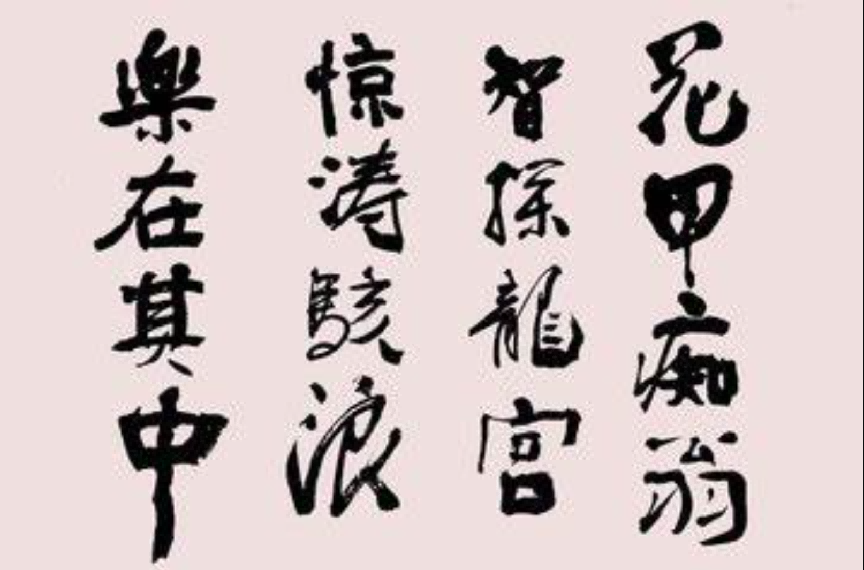 花甲痴翁
智探龍宫
惊涛駭浪
樂在其中